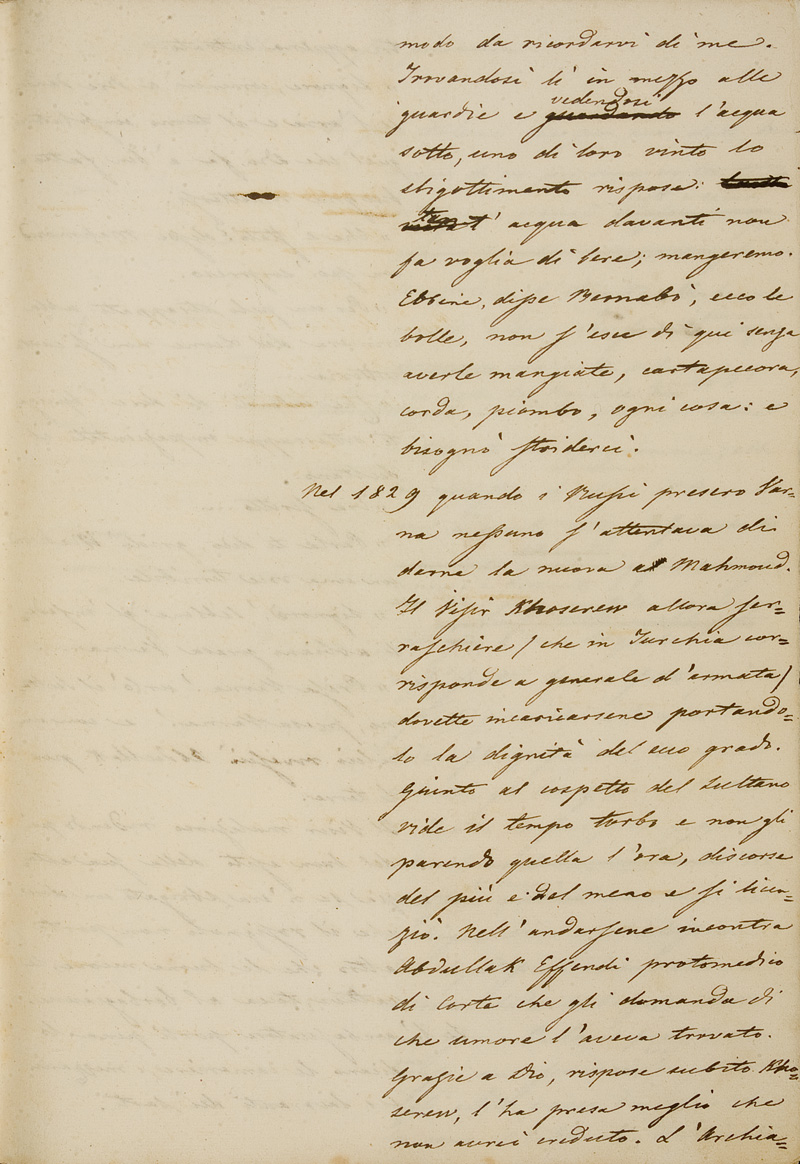 modo da ricordarvi di me.
Trovandosi lì in mezzo alle
guardie e vedendosi guardando l'acqua
sotto, uno di loro vinto lo
sbigottimento rispose:
tan t' acqua davanti non
fa voglia di bere; mangeremo.
Ebbene, disse Bernabò, ecco le
bolle, non s'esce di qui senza
averle mangiate, cartapecora,
corda, piombo, ogni cosa: e
bisognò
Nel 1829 quando i Russi presero Var=
na nessuno s'attentava di
darne la nuova a Mahmoud.
Il Visir Khoserew allora ser=
raschiere / che in Turchia cor=
risponde a generale d'armata /
dovette incaricarsene portando=
lo la dignità del suo grado.
Giunto al cospetto del Sultano
vide il tempo torbo e non gli
parendo quella l'ora, discorse
del più e del meno e si licen=
ziò. Nell'andarsene incontra
Abdullak Effendi protomedico
di Corte che gli domanda di
che umore l'aveva trovato.
Grazie a Dio, rispose subito Kho=
serew, l'ha presa meglio che
non avrei creduto. L'Archia=